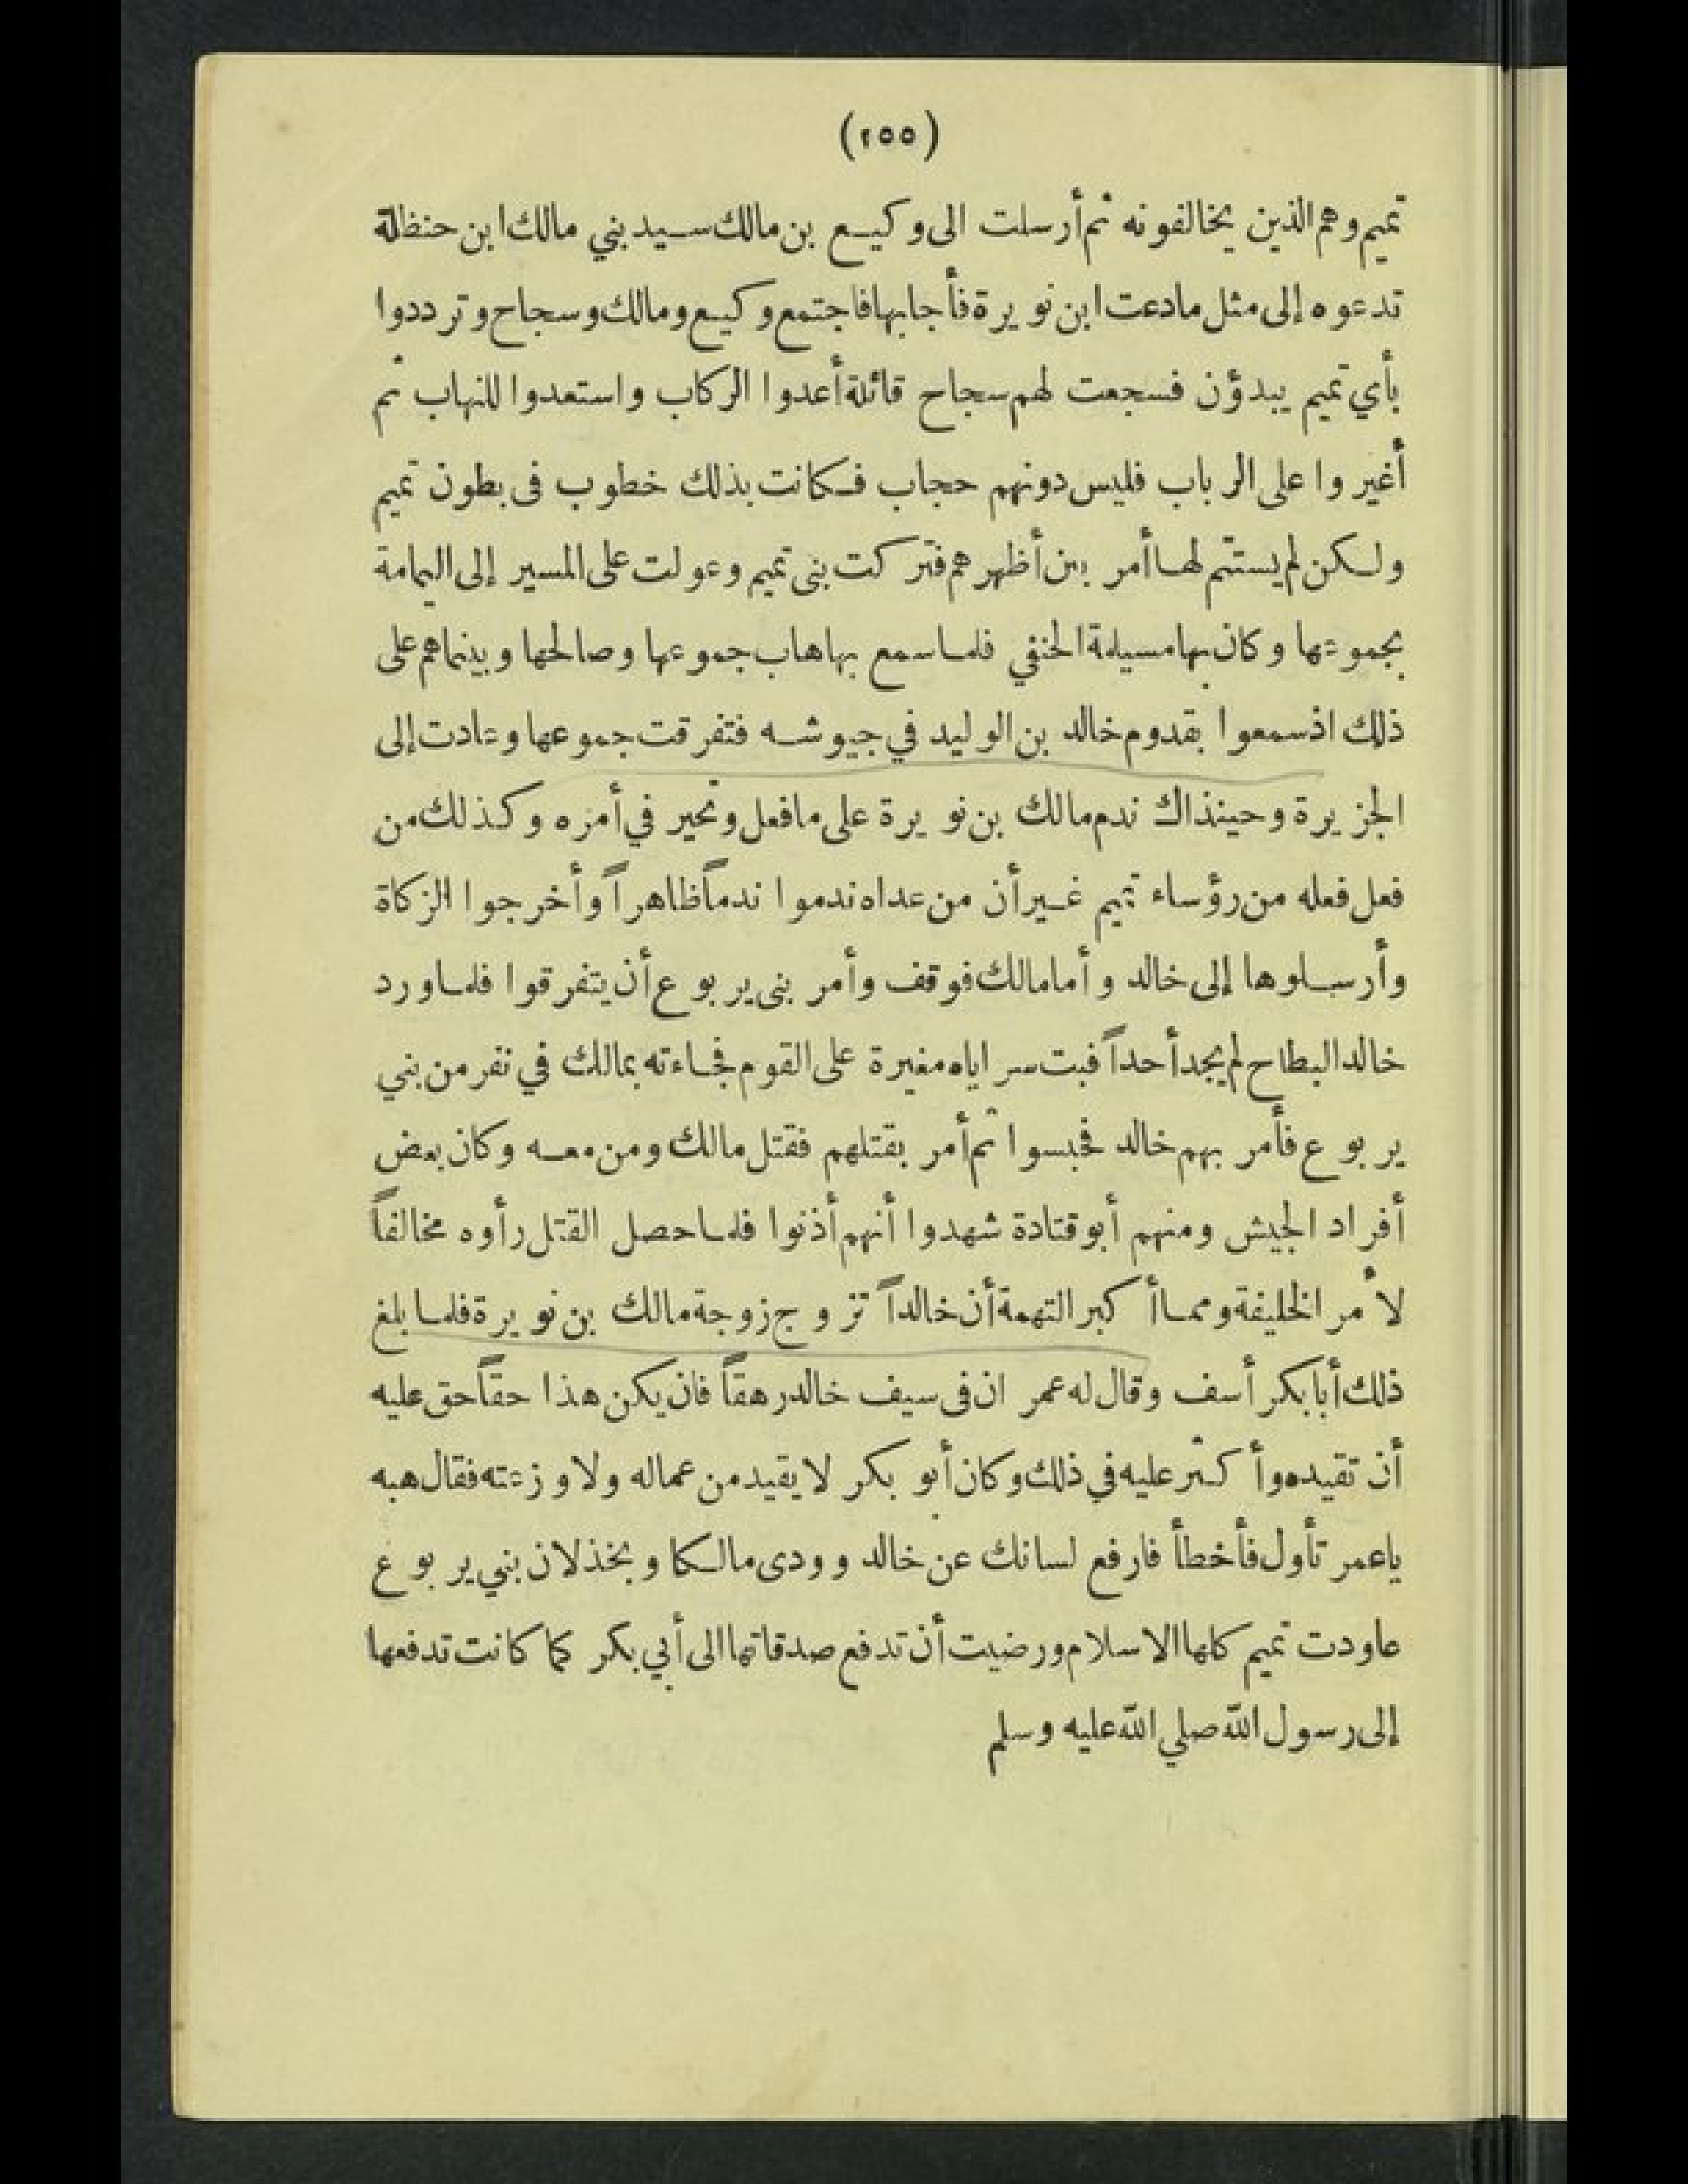 (٢٥٥)
تميم وهم الذين يخالفونه ثم أرسلت الى وكيع بن مالك سيد بني مالك ابن حنظلة
تدعوه إلى مثل مادعت ابن نويرة فأجابها فاجتمع وكيع ومالك وسجاح وترددوا
بأي تميم يبدؤن فسجعت لهم سجاح قائلة أعدوا الركاب واستعدوا للنهاب ثم
أغيروا على الرباب فليس دونهم حجاب فكانت بذلك خطوب فى بطون تميم
ولكن لم يستتم لها أمر بين أظهرهم فتركت بنى تميم وعولت على المسير إلى اليمامة
بجموعها وكان بها مسيلمة الحنفي فلما سمع بها هاب جموعها وصالحها وبينماهم على
ذلك اذ سمعوا بقدوم خالد بن الوليد في جيوشه فتفرقت جموعها وعادت إلى
الجزيرة وحينذاك ندم مالك بن نويرة على مافعل وتحير في أمره وكذلك من
فعل فعله من رؤساء تميم غير أن من عداه ندموا ندماً ظاهراً وأخرجوا الزكاة
وأرسلوها إلى خالد وأما مالك فوقف وأمر بنى يربوع أن يتفرقوا فلما ورد
خالد البطاح لم يجد أحداً فبث سراياه مغيرة على القوم فجاءته بمالك في نفر من بني
يربوع فأمر بهم خالد فحبسوا ثم أمر بقتلهم فقتل مالك ومن معه وكان بعض
أفراد الجيش ومنهم أبو قتادة شهدوا أنهم أذنوا فلما حصل القتل رأوه مخالفاً
لأمر الخليفة ومما أكبر التهمة أن خالداً تزوج زوجة مالك بن نويرة فلما بلغ
ذلك أبا بكر أسف وقال له عمر ان فى سيف خالد رهقاً فان يكن هذا حقاً حق عليه
أن تقيده وأكثر عليه في ذلك وكان أبو بكر لا يقيد من عماله ولا وزعته فقال هبه
ياعمر تأول فأخطأ فارفع لسانك عن خالد وودى مالكا وبخذلان بني يربوع
عاودت تميم كلها الاسلام ورضيت أن تدفع صدقاتها الى أبي بكر كما كانت تدفعها
إلى رسول الله صلي الله عليه وسلم